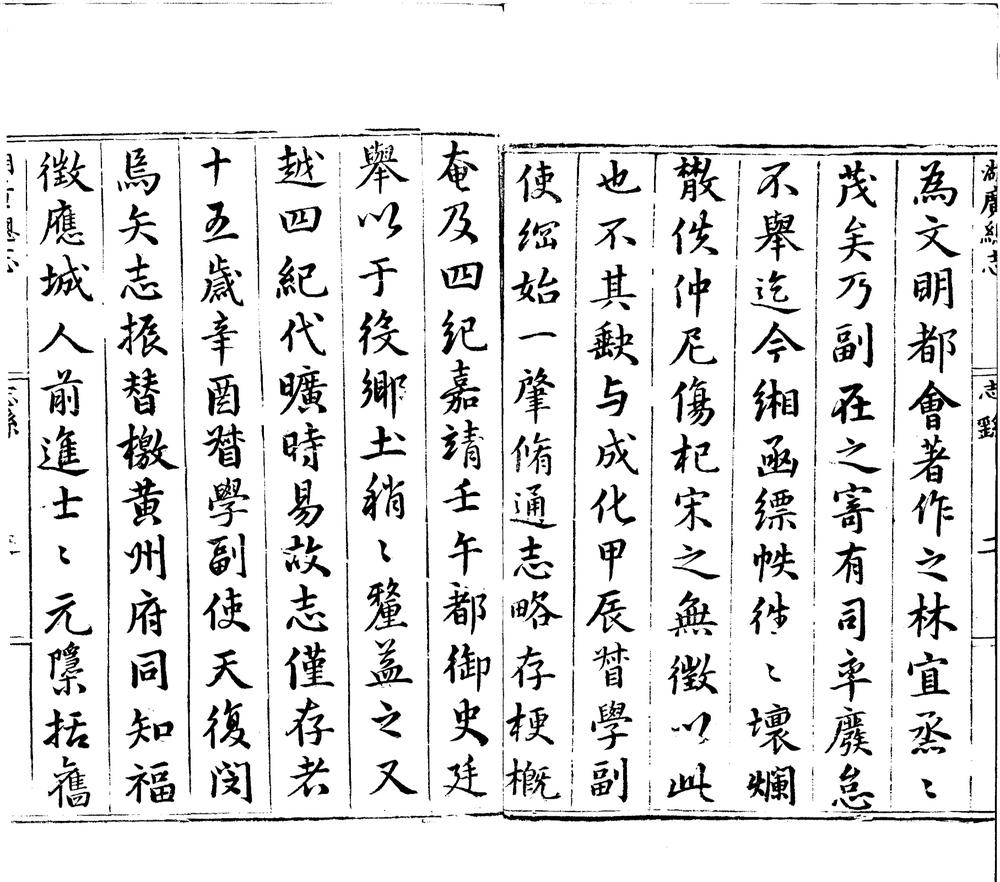 湖廣總志 志敘 二
為文明都會著作之林宜烝〻
茂矣乃副在之寄有司率廢怠
不舉迄今緗函縹帙往〻壞爛
散佚仲尼傷杞宋之無徵以此
也不其缺与成化甲辰督學副
使綱始一肇脩通志略存梗概
奄及四紀嘉靖壬午都御史廷
舉以于役鄉土稍〻釐益之又
越四紀代曠時易故志僅存者
十五歲辛酉督學副使天復閔
焉矢志振替檄黃州府同知福
徵應城人前進士〻元隱括舊